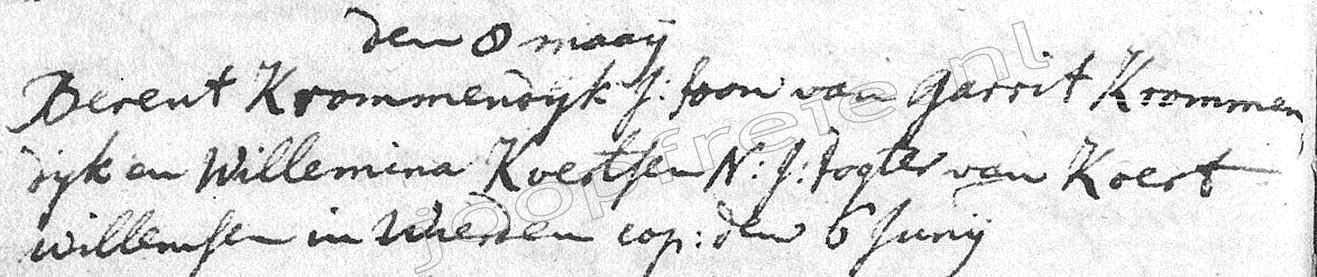 den 8 maaij
Berent Krommendijk J: soon van Garrit Krommen
dijk en Willemina Koertsen N: J: dogter van Koert
willemsen in Wierden cop: den 6 Junij
joopfreie.nl